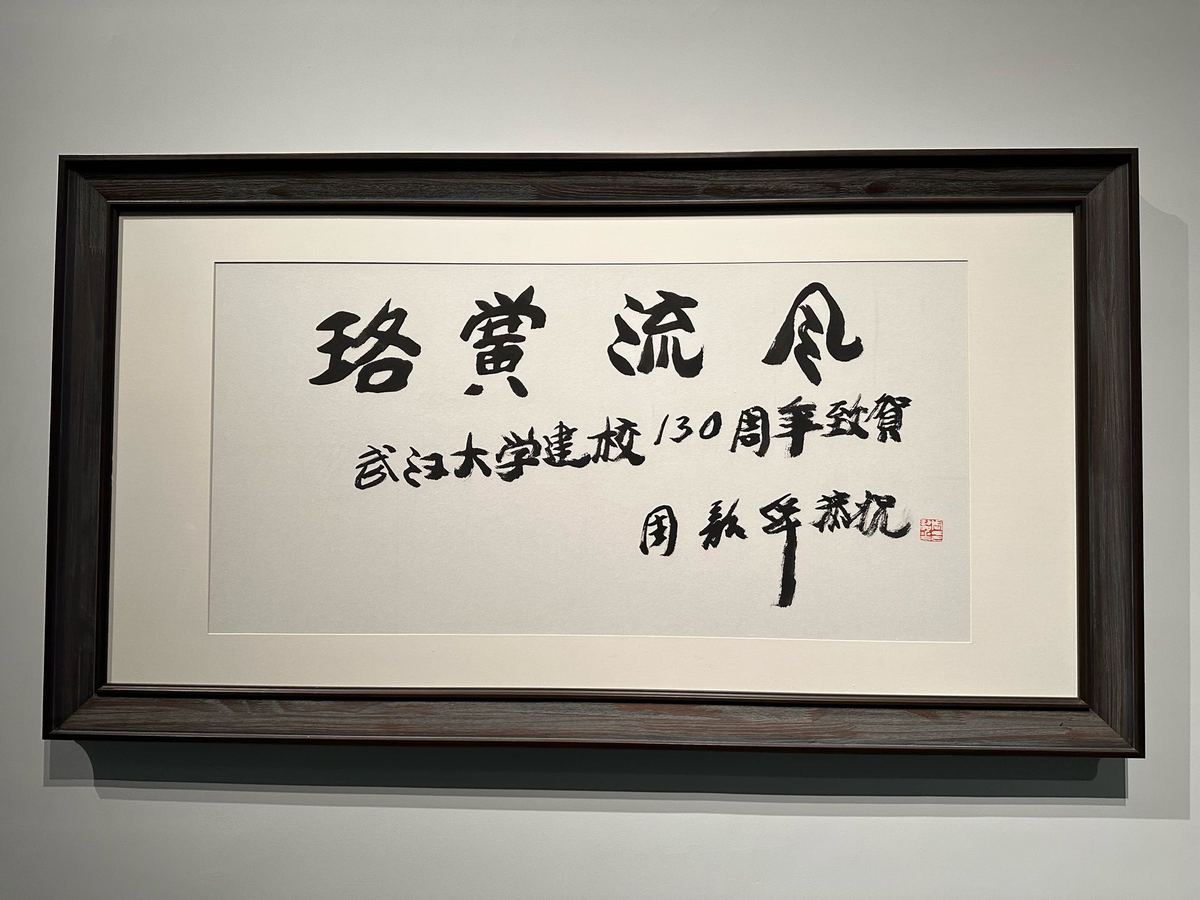 珞黉流风
武汉大学建校130周年致賀
周韶华恭祝